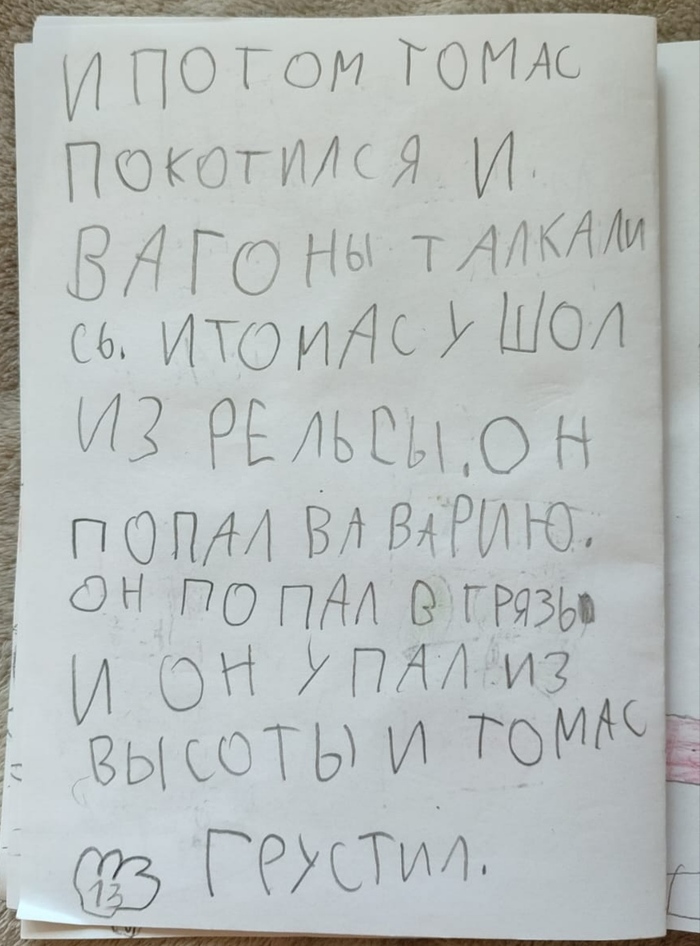 И ПОТОМ ТОМАС
ПОКОТИЛСЯ И
ВАГОНЫ ТАЛКАЛИ
СЬ. ИТОМАС УШОЛ
ИЗ РЕЛЬСЫ. ОН
ПОПАЛ ВАВАРИЮ.
ОН ПОПАЛ В ГРЯЗЬ
И ОН УПАЛ ИЗ
ВЫСОТЫ И ТОМАС
ГРУСТИЛ.
13